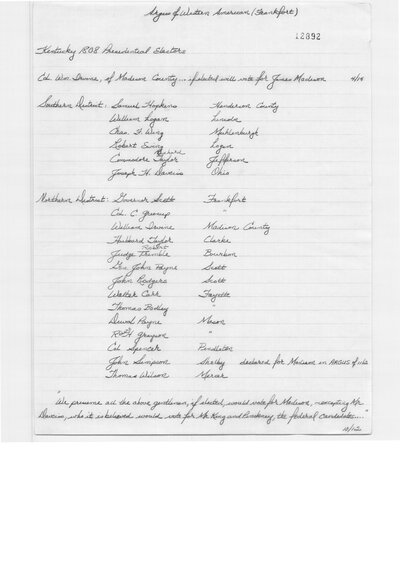 Argus of Western American (Frankfort)
12892
Kentucky 1808 Presidential Electors
Col. Wm. Irvine, of Madison County... if elected will vote for James Madison 4/14
Southern District: Samuel Hopkins Henderson County
William Logan Lincoln
Chas. F. Wing Muhlenburgh
Robert Ewing Logan
Richard
Commodore Taylor Jefferson
Joseph H. Daveiss Ohio
Northern District: Governor Scott Frankfort
Col. C. Greenup "
William Irvine Madison County
Hubbard Taylor Clarke
Robert
Judge Trimble Bourbon
Gen. John Payne Scott
John Rodgers Scott
Walter Carr Fayette
Thomas Bodley "
Duval Payne Mason
R. H. Grayson "
Col. Spencer Pendleton
John Simpson Shelby declared for Madison in ARGUS of
Thomas Wilson Mercer
"We presume all the above gentlemen, if elected would vote for Madison, excepting Mr.
Daveiss, who it is believed would vote for Mr. King and Pinckney, the federal candidates...."
10/12